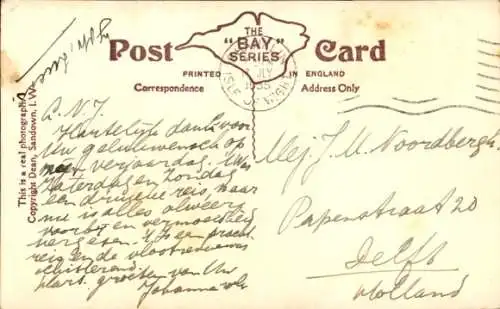 Post Card
THE
"BAY"
SERIES
PRINTED IN ENGLAND
Correspondence Address Only
This is a real photograph
Copyright Dean, Sandown, I.W.
ISLE OF WIGHT
Hartelijk dank voor
Uw gelukwensch op
verjaardag.
Zaterdag en Zondag
een reis, maar
nu is alles alweer
voorbij en
vergeten. 't Is een
reis en de
schitterend.
Hart. groeten van Uw
Johanna
Mej. J. M. Noordbergh
Papenstraat 20
Delft
Holland